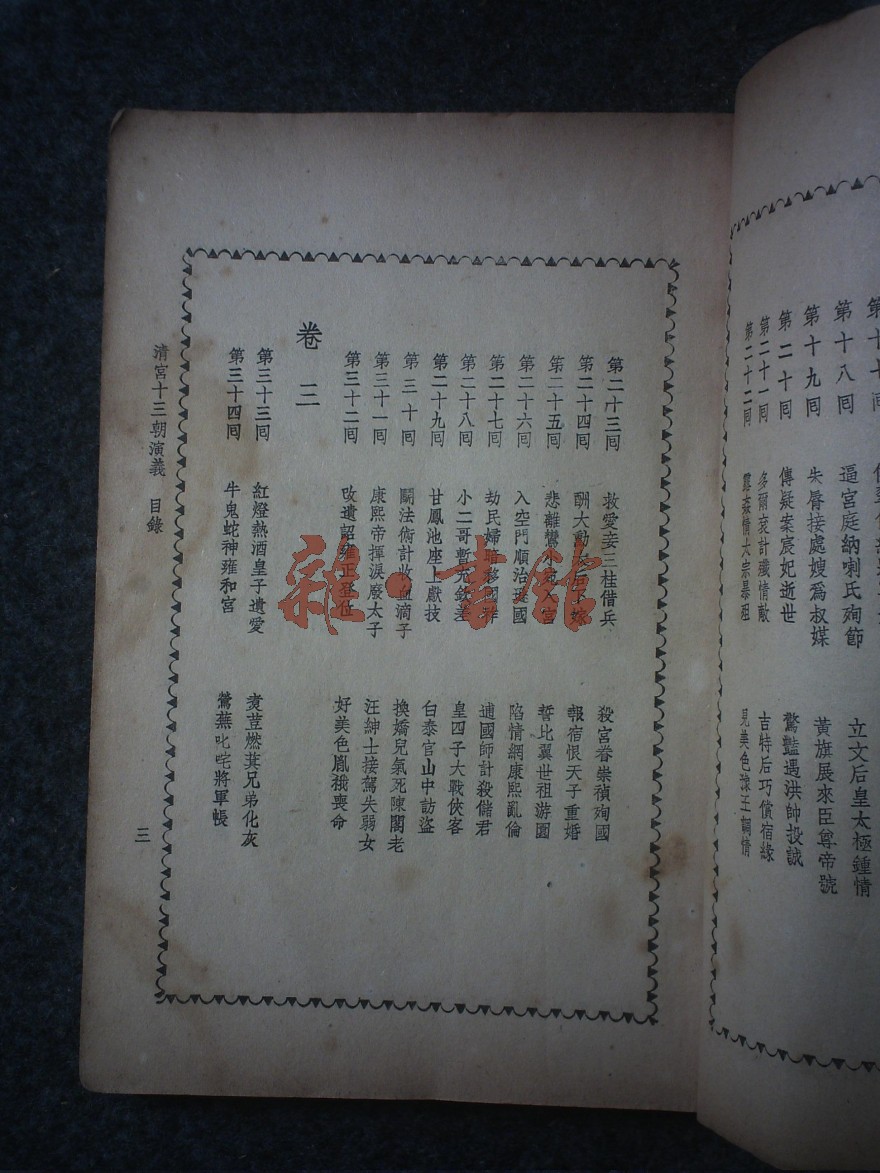 第十八囘 逼宮庭納喇氏殉節 立文后皇太極鍾情
第十九囘 朱脣接處嫂爲叔媒 黃旗展來臣尊帝號
第二十囘 傳疑案宸妃逝世 驚豔遇洪帥投誠
第二十一囘 多爾袞計殲情敵 吉特后巧償宿緣
第二十二囘 露姦情太宗暴殂 見美色豫王調情
第二十三囘 救愛妾三桂借兵 殺宮眷崇禎殉國
第二十四囘 酬大勳太后下嫁 報宿恨天子重婚
第二十五囘 悲離鸞小宛入宮 誓比翼世祖游園
第二十六囘 入空門順治 國 陷情網康熙亂倫
第二十七囘 劫民婦 移國 逋國師計殺儲君
第二十八囘 小二哥暫充欽差 皇四子大戰俠客
第二十九囘 甘鳳池座上獻技 白泰官山中訪盜
第三十囘 鬭法術計收血滴子 換嬌兒氣死陳閣老
第三十一囘 康熙帝揮淚廢太子 汪紳士接駕失弱女
第三十二囘 改遺詔雍正登位 好美色胤禩喪命
卷三
第三十三囘 紅燈熱酒皇子遺愛 煑荳燃萁兄弟化灰
第三十四囘 牛鬼蛇神雍和宮 鶯燕叱咤將軍帳
清宮十三朝演義 目錄
三
雜·書館